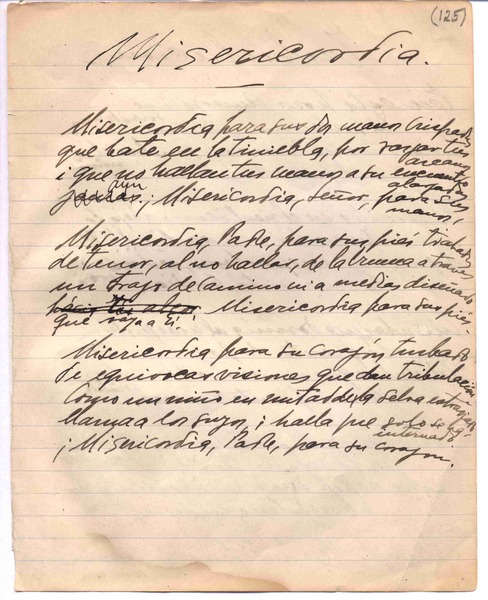 (125)
Misericordia.
Misericordia para sus dos manos crispadas
que bate en la tiniebla, por rasgar tus arcanos
i que no hallan tus manos a su encuentro alargadas
aun. ¡Misericordia, Señor, para sus manos!
Misericordia, Padre, para sus piés trabados
de temor, al no hallar, de la
un trazo de camino ni a medias diseñado
que vaya a Ti! Misericordia para sus piés.
Misericordia para su corazón turbado
de equivocas visiones que dan tribulación
Como un niño en mitad de la selva extraviado
llama a los suyos, i halla que solo se ha internado
¡Misericordia, Padre, para su corazón.